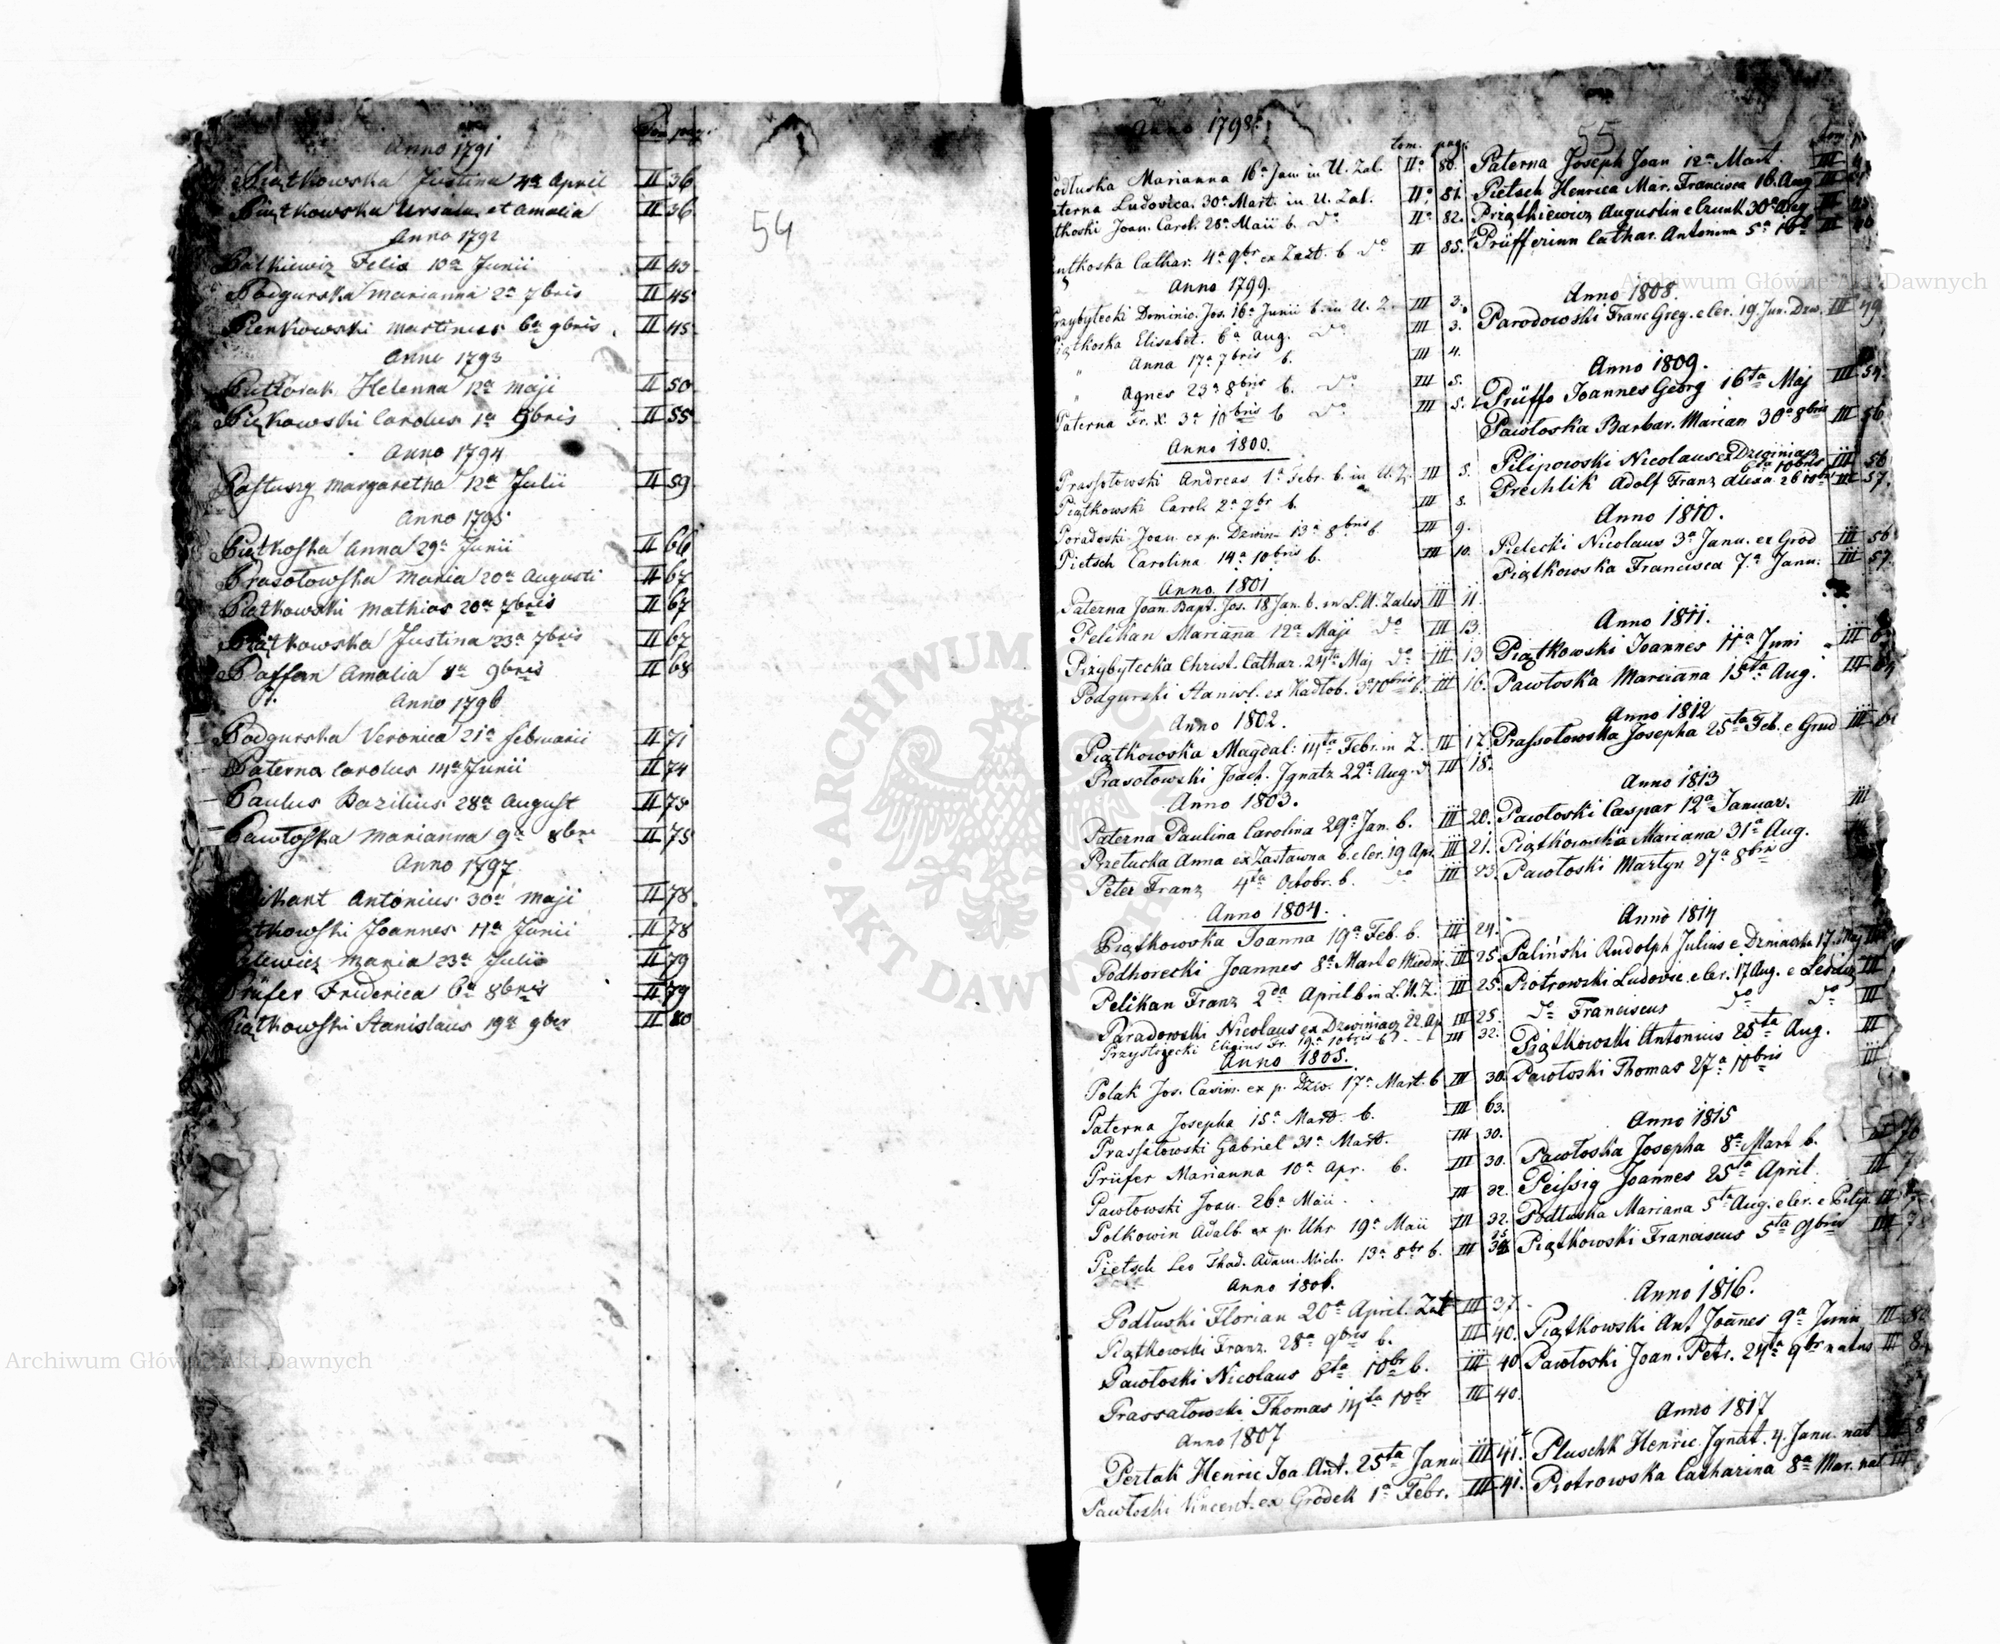 Anno 1791
Tom pag.
Piątkowska Justina 4ta April II 36
Piątkowska Ursula et Amalia II 36
Anno 1792
54
Patkiewiz Felix 10a Junii II 43
Podgurska Marianna 2a 7bris II 45
Pienkowski Martinus 6a 9bris II 45
Anno 1793
Helenna 12a Maji II 50
Piękowski Carolus 1a 9bris II 55
Anno 1794
Pastuszy Margaretha 12a Julii II 59
Anno 1795
Piątkoska Anna 29a Junii II 66
Prasołowska Maria 20a Augusti II 67
Piątkowski Mathias 20a 7bris II 67
Piątkowska Justina 23a 7bris II 67
Amalia 8a 9bris II 68
Anno 1796
Podgurska Veronica 21a februarii II 71
Paterna Carolus 14a Junii II 74
Paulus Bazilius 28a August II 75
Pawłoska Marianna 9a 8bri II 75
Anno 1797
Antonius 30a Maji II 78
Joannes 11a Junii II 78
Maria 23a Julii II 79
Prüfer Friderica 6a 8bris II 79
Piątkowski Stanislaus 19a 9ber II 80
Anno 1798.
tom. pag.
odłuska Marianna 16a Jan in U. Zal. IIo 80.
aterna Ludovica 30a Mart. in U. Zal. IIo 81.
tkoski Joan. Carol. 26a Maii b. do IIo 82.
Cathar. 4a 9br ex Zast. b do II 85.
Anno 1799.
Przybyłecki Dominic. Jos. 16a Junii b. in U. Z. III 3.
Piątkoska Elisabet. 6a Aug. do III 3.
" Anna 17a 7bris b. III 4.
" Agnes 23a 8bris b. do III 5.
Paterna Fr. X. 3a 10bris b do III 5.
Anno 1800.
Prassołowski Andreas 1a Febr. b. in U. Z. III 5.
Piątkowski Carol 2a 7br b. III 8.
Poradoski Joan. ex p. Dzwin 13a 8bris b. III 9.
Pietsch Carolina 14a 10bris b. III 10.
Anno 1801
Paterna Joan. Bapt. Jos. 18 Jan. b. in L. U. Zales III 11.
Pelikan Marianna 12a Maji do III 13.
Przybyłecka Christ. Cathar. 24ta Maj do III 13
Podgurski Stanisl. ex Kadłob. 3a 10bris b. III 16.
Anno 1802.
Piątkowska Magdal: 14ta Febr. in Z. III 17.
Prasołowski Joach. Ignatz 22a Aug. d III 18.
Anno 1803.
Paterna Paulina Carolina 29a Jan. b. III 20.
Przetucka Anna ex Zastawna b. e ler. 19 Apr. III 21.
Peter Franz 4ta Octobr. b. do III 23.
Anno 1804.
Piątkowska Joanna 19a Feb. b. III 24.
Podhorecki Joannes 8a Mart e III 25.
Pelikan Franz 2da April b in L. U. Z. III 25.
Paradowski Nicolaus ex Dzwiniacz 22. Ap III 25.
Przystrzecki Eligius Fr. 19a 10bris b III 32.
Anno 1805.
Polak Jos. Casim. ex p. Dzw. 17a Mart. b III 30.
Paterna Josepha 15a Mart b. III 63.
Prassatowski Gabriel 31a Mart. III 30.
Prüfer Marianna 10a Apr. b. III 30.
Pawłowski Joan. 26a Maii III 32.
Polkowin Adalb. ex p. Uhr 19a Maii III 32.
Pietsch Leo Thad. Adam. Mich. 13a 8br b. III 35
Anno 1806.
Podłuski Florian 20a April. Zal III 37.
Piątkowski Franz. 28a 9bris b. III 40.
Pawłoski Nicolaus 6ta 10br b. III 40
Prassatowski Thomas 14ta 10br III 40.
Anno 1807
Pertak Henric Joa. Ant. 25ta Janu. III 41.
Pawłoski Vincent. ex Grodek 1a Febr. III 41.
55
tom. p
Paterna Joseph Joan 12a Mart. III
Pietsch Henrica Mar. Francisca 16. Aug III
Prząthiewicz Augustin e Czunk 30a Aug III
Prüfferinn Cathar. Antonina 5a III
Anno 1808.
Parodowski Franc Greg. e ler. 19. Jun. Dzw. III 49
Anno 1809.
Prüffo Joannes Georg 16ta Maj III 54.
Pawłoska Barbar. Marian 30a 8bris III 56
Pilipowski Nicolaus ex Dzwiniacz 6ta 10bris III 56
Prechlik Adolf Franz Alexa. 26 10bris III 57.
Anno 1810.
Pielecki Nicolaus 3a Janu. ex Grod III 56
Piątkowska Francisca 7a Janu. III 57.
Anno 1811.
Piątkowski Joannes 11a Juni III
Pawłoska Marianna 15ta Aug. III
Anno 1812
Prassołowska Josepha 25ta Feb. e Grud III
Anno 1813
Pawłoski Caspar 12a Januar. III
Piątkowska Mariana 31a Aug.
Pawłoski Martyn 27a 8bris
Anno 1814
Paliński Rudolph Julius e Dzwiniacka 17. Maj III
Piotrowski Ludovic. e ler. 17 Aug. e III
do Franciscus do do III
Piątkowski Antonius 25ta Aug. III
Pawłoski Thomas 27a 10bris III
Anno 1815
Pawłoska Josepha 8a Mart b. III 70
Peissig Joannes 25ta April. III 7
Podłuska Mariana 5ta Aug. e ler. e Pilip. III
Piątkowski Franciscus 5ta 9bris III 78
Anno 1816.
Piątkowski Ant Joannes 9a Junii III 82
Pawłoski Joan. Petr. 24ta 9br natus III 84
Anno 1817
Pluschk Henric. Ignat. 4. Janu. nat III 8
Piotrowska Catharina 8a Mar. nat III
Archiwum Główne Akt Dawnych
ARCHIWUM GŁÓWNE AKT DAWNYCH
Archiwum Główne Akt Dawnych